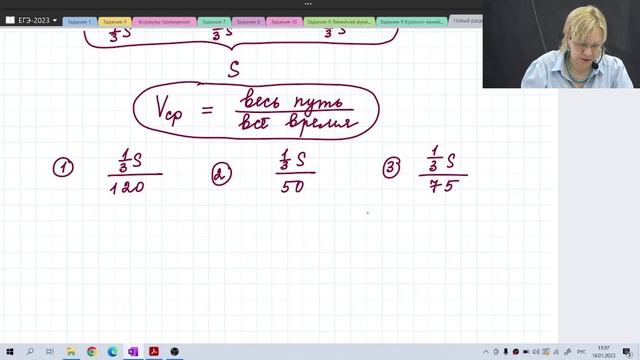 ЕГЭ-2023
Задание 1 Задание 4 Формулы приведения Задание 7 Задание 8 Задание 10 Задание 9 Линейная функ... Задание 9 Кусочно-линей... Новый раздел
1/3 S 1/3 S 1/3 S
S
Vср = весь путь / всё время
① 1/3 S / 120 ② 1/3 S / 50 ③ 1/3 S / 75
РУС 11:07
16.01.2023